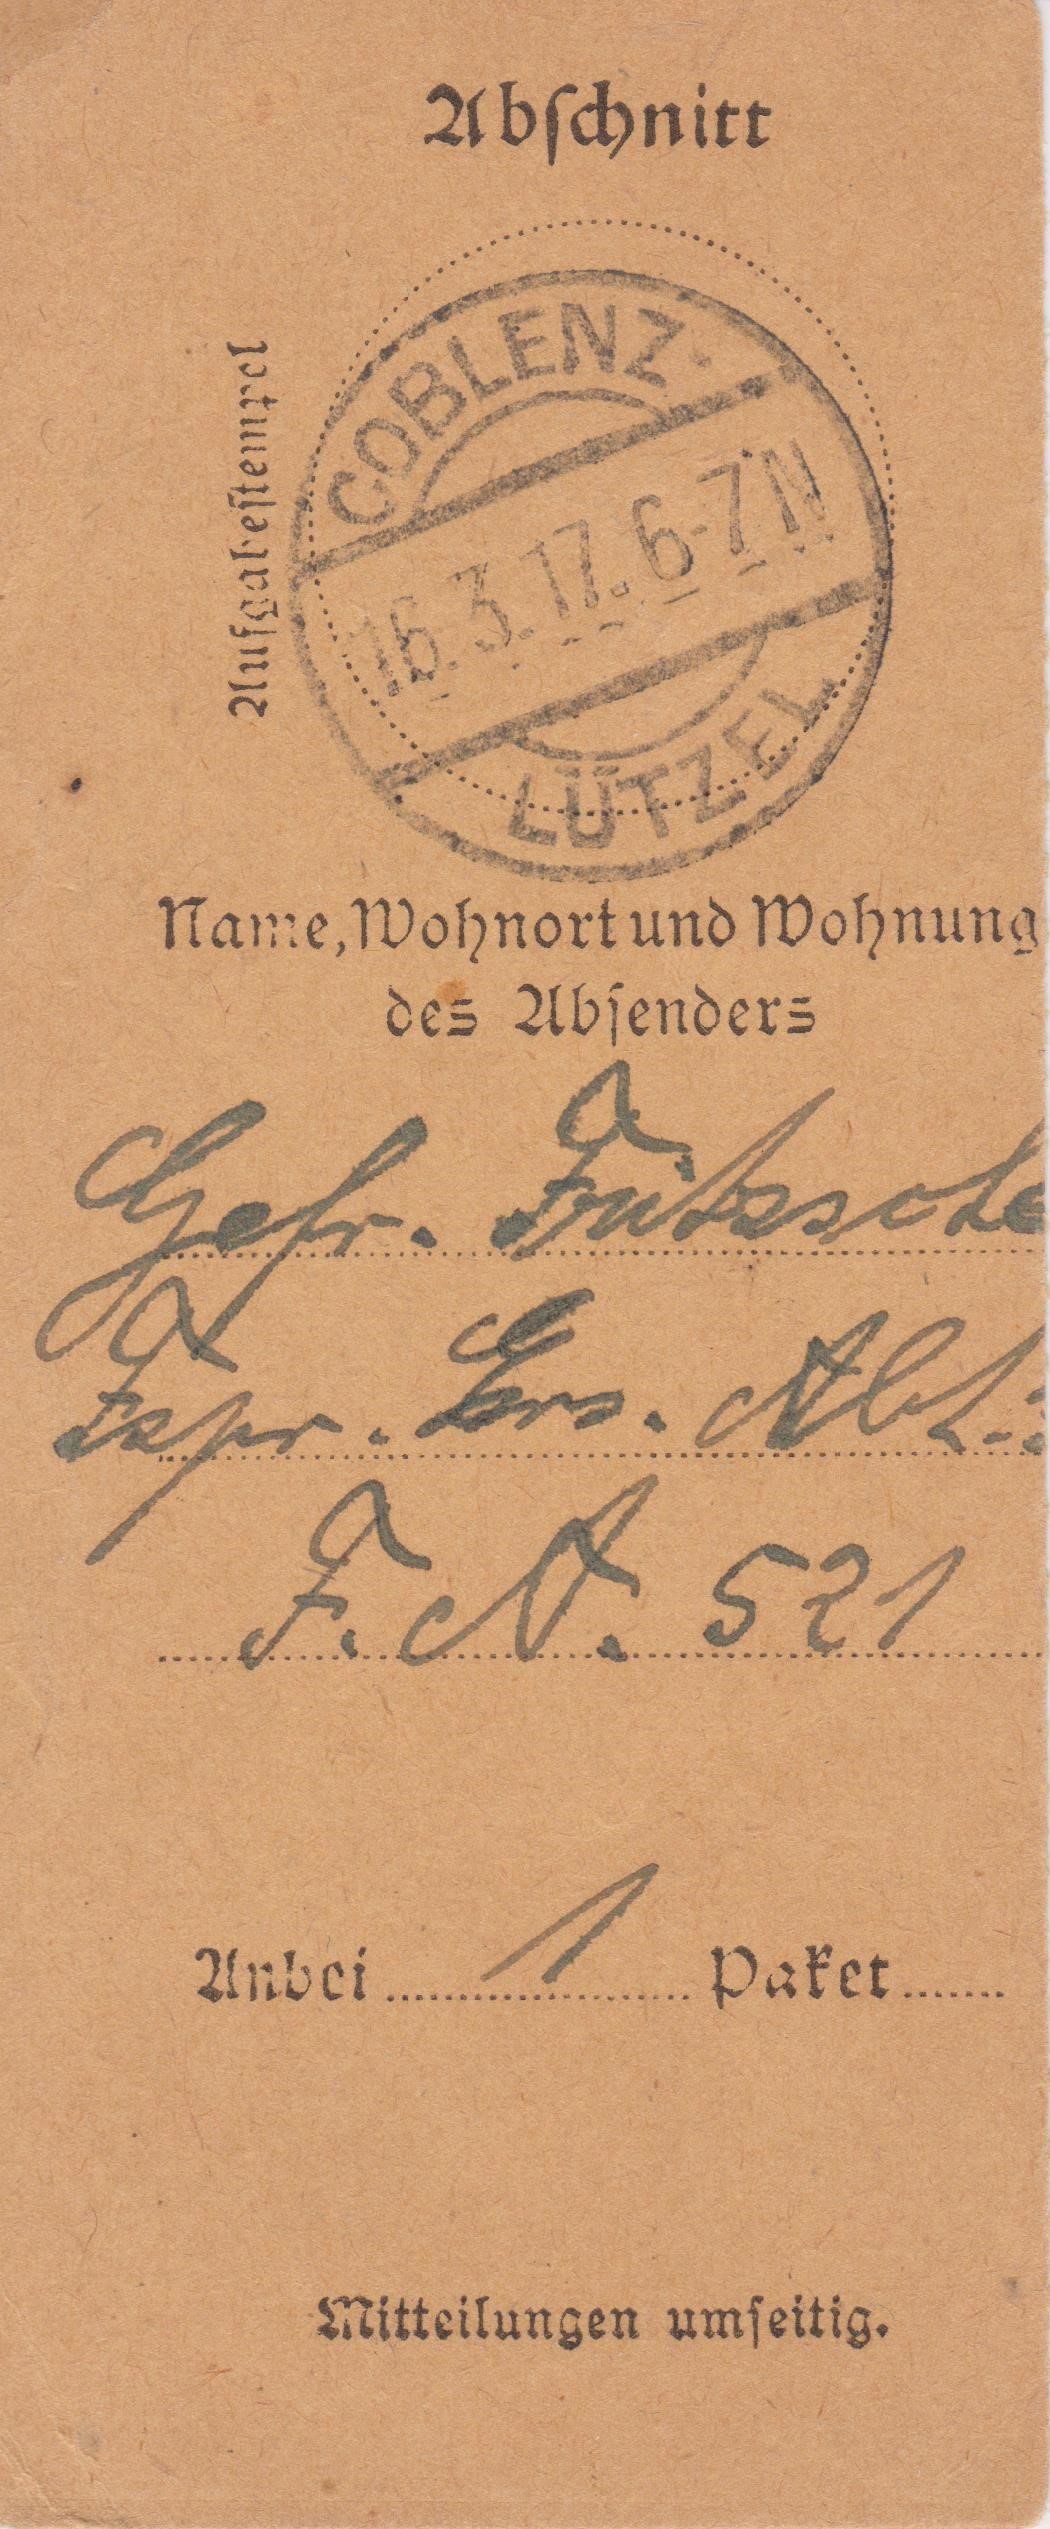 Abschnitt
Aufgabestempel
COBLENZ-
16.3.17. 6-7 N
LÜTZEL
Name, Wohnort und Wohnung
des Absenders
Gefr. Fritzsche
Fspr. Ers. Abt.
F. N. 521
Anbei 1 Paket
Mitteilungen umseitig.